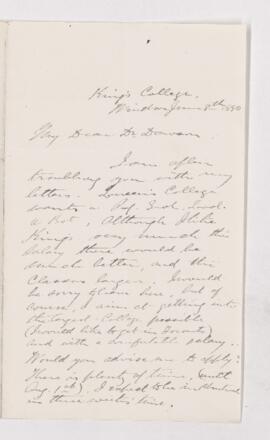 King's College,
Windsor June 8th 1880
My Dear Dr Dawson
I am often
troubling you with my
letters. Queen's College
wants a Prof. Geol, Zool.
& Bot, Although I like
King's very much the
salary there would be
much better, and the
Classes larger. I would
be sorry to leave here, but of
course I aim at getting into
the largest College possible
(I would like to get in Toronto)
and with a respectable salary.
Would you advise me to apply?
There is plenty of time, (until
Aug 1st). I expect to be in Montreal
in three weeks time.